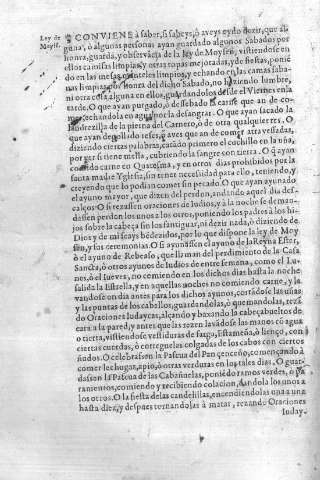 Ley de Moysen.
CONVIENE à saber, si sabeys, ò aveys oydo dezir, que al-
guna, ò algunas personas ayan guardado algunos Sabados por
honra, guarda, y observãcia de la ley de Moysen, vistiendose en
ellos camisas limpias, y otras ropas mejoradas, y de fiestas, ponië
do en las mesas manteles limpios, y echando en las camas saba-
nas limpias, por honra del dicho Sabado, no haziendo lumbre,
ni otra cosa alguna en ellos, guardandolos desde el Viernes en la
tarde. O que ayan purgado, ò desebado la carne que an de co-
mer, echandola en agua por la desangrar. O que ayan sacado la
landrezilla de la pierna del Carnero, ò de otra qualquier res. O
que ayan degollado reses, ò aves que an de comer atravessadas,
diziendo ciertas palabras, catãdo primero el cuchillo en la uña,
por ver si tiene mella, cubriendo la sangre con tierra. O q̃ ayan
comido carne en Quaresma, y en otros dias prohibidos por la
santa madre Yglesia, sin tener necessidad para ello, teniendo, y
creyendo que lo podian comer sin pecado. O que ayan ayunado
el ayuno mayor, que dizen del perdon, andando aquel dia des-
calços. O si rezassen oraciones de Iudios, y à la noche se deman-
dassen perdon los unos à los otros, poniendo los padres à los hi-
jos sobre la cabeça sin los santiguar, ni dezir nada, ò diziendo de
Dios y de mi seays bēdezidos, por lo que dispone la ley de Moy
sen, y sus ceremonias. O si ayunassen el ayuno de la Reyna Ester,
ò el ayuno de Rebeaso, que llaman del perdimiento de la Casa
Sancta, ò otros ayunos de Iudios de entre semana, como el Lu-
nes, ò el Iueves, no comiendo en los dichos dias hasta la noche
salida la Estrella, y en aquellas noches no comiendo carne, y la-
vandose un dia antes para los dichos ayunos, cortãdose las uñas
y las puntas de los cabellos, guardandolas, ò quemandolas, rezã
do Oraciones Iudaycas, alçando y baxando la cabeça bueltos de
cara a la pared, y antes que las rezen lavãdose las manos cō agua
o tierra, vistiendose vestiduras de sarga, Estameña, ò lienço, con
ciertas cuerdas, ò correguelas colgadas de los cabos con ciertos
ñudos. O celebrassen la Pascua del Pan çenceño, començando à
comer lechugas, apio, ò otras verduras en los tales dias. O guar-
dassen la Pascua de las Cabañuelas, poniēdo ramos verdes, o pa
ramentos, comiendo y recibiendo colacion, dandola los unos a
los otros. O la fiesta de las candelillas, encendiendolas una a una
hasta diez, y despues tornandolas à matar, rezando Oraciones
Iuday-